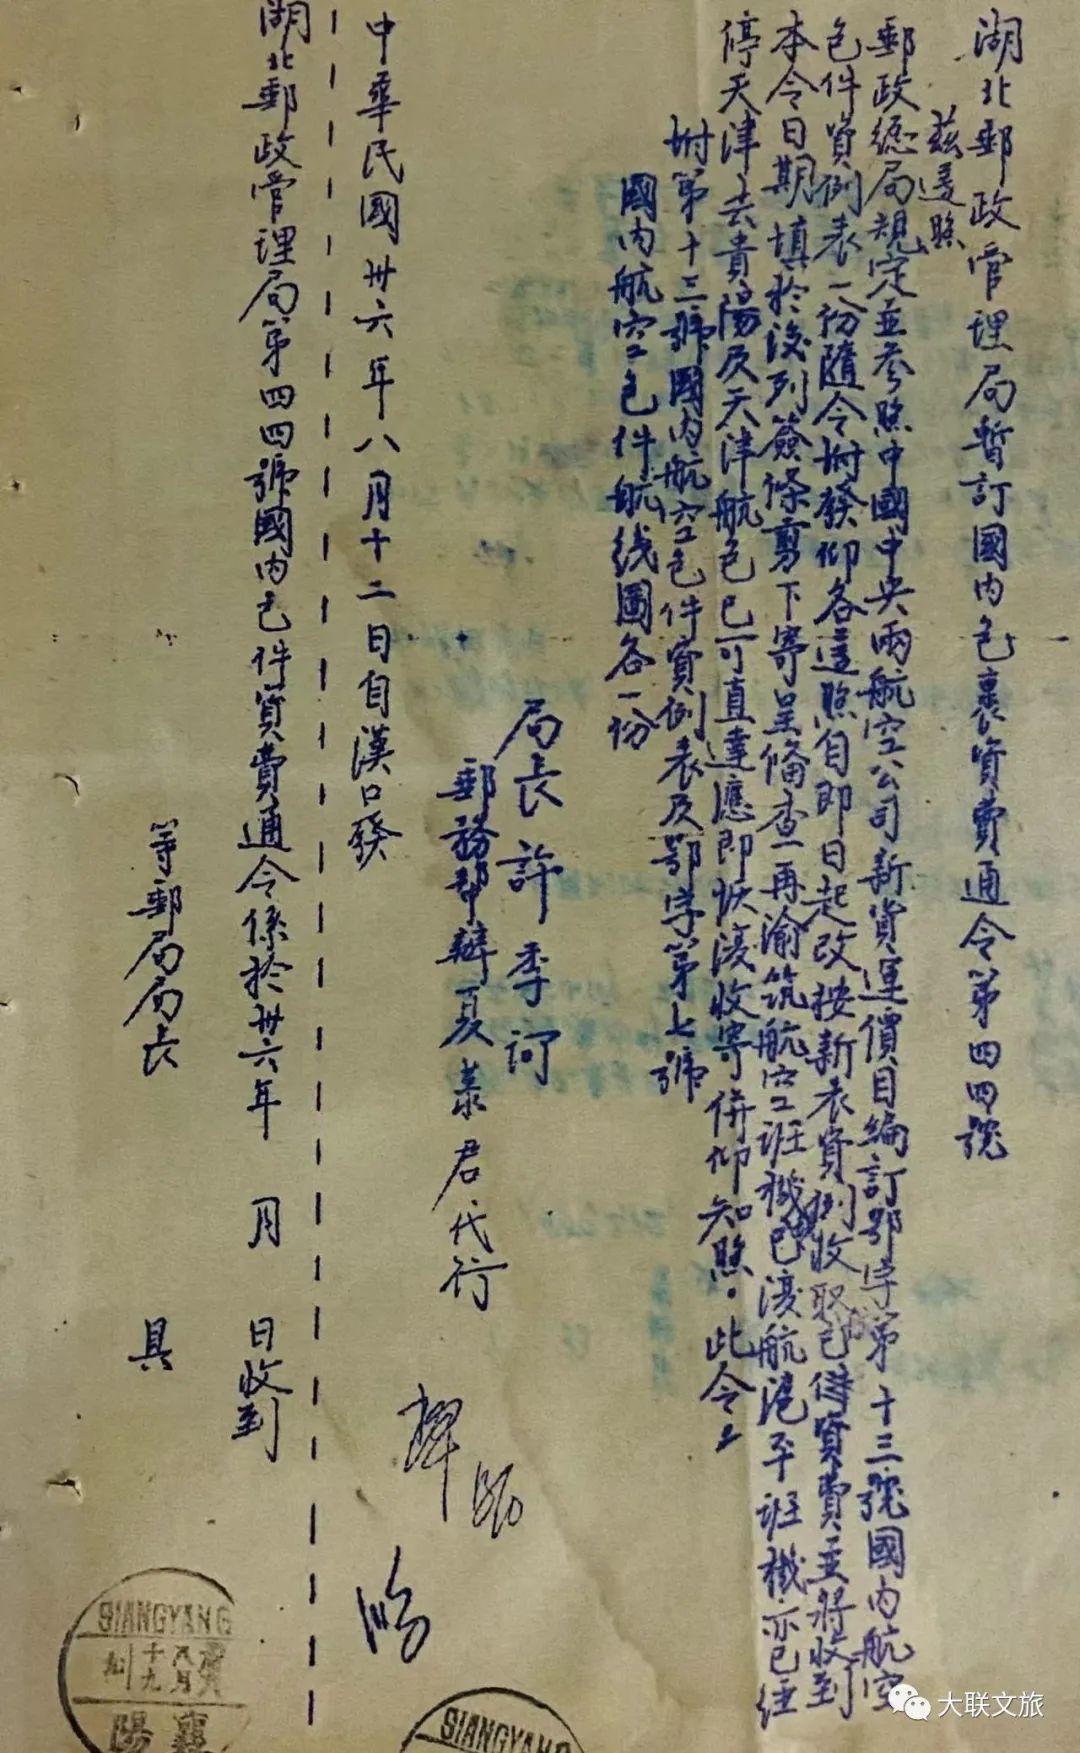 湖北郵政管理局暫訂國内包裹資費通令第四四號
茲遵照
郵政總局規定並參照中國中央兩航空公司新貨運價目編訂鄂字第十三號國内航空
包件資例表一份隨令坿發仰各遵照自即日起改按新表資例收取包件資費並將收到
本令日期填於後列簽條剪下寄呈備查再渝筑航空班機已復航滬平班機亦已經
停天津去貴陽及天津航包已可直達應即恢復收寄併仰知照。此令
坿第十三號國内航空包件資例表及鄂字第七號
國内航空包件航线圖各一份
局長許季珂
郵務幫辦夏荼君代行
中華民國卅六年八月十二日自漢口發
湖北郵政管理局第四四號國内包件資費通令係於卅六年 月 日收到
等郵局局長 具
SIANGYANG
襄陽
SIANGYANG
大联文旅